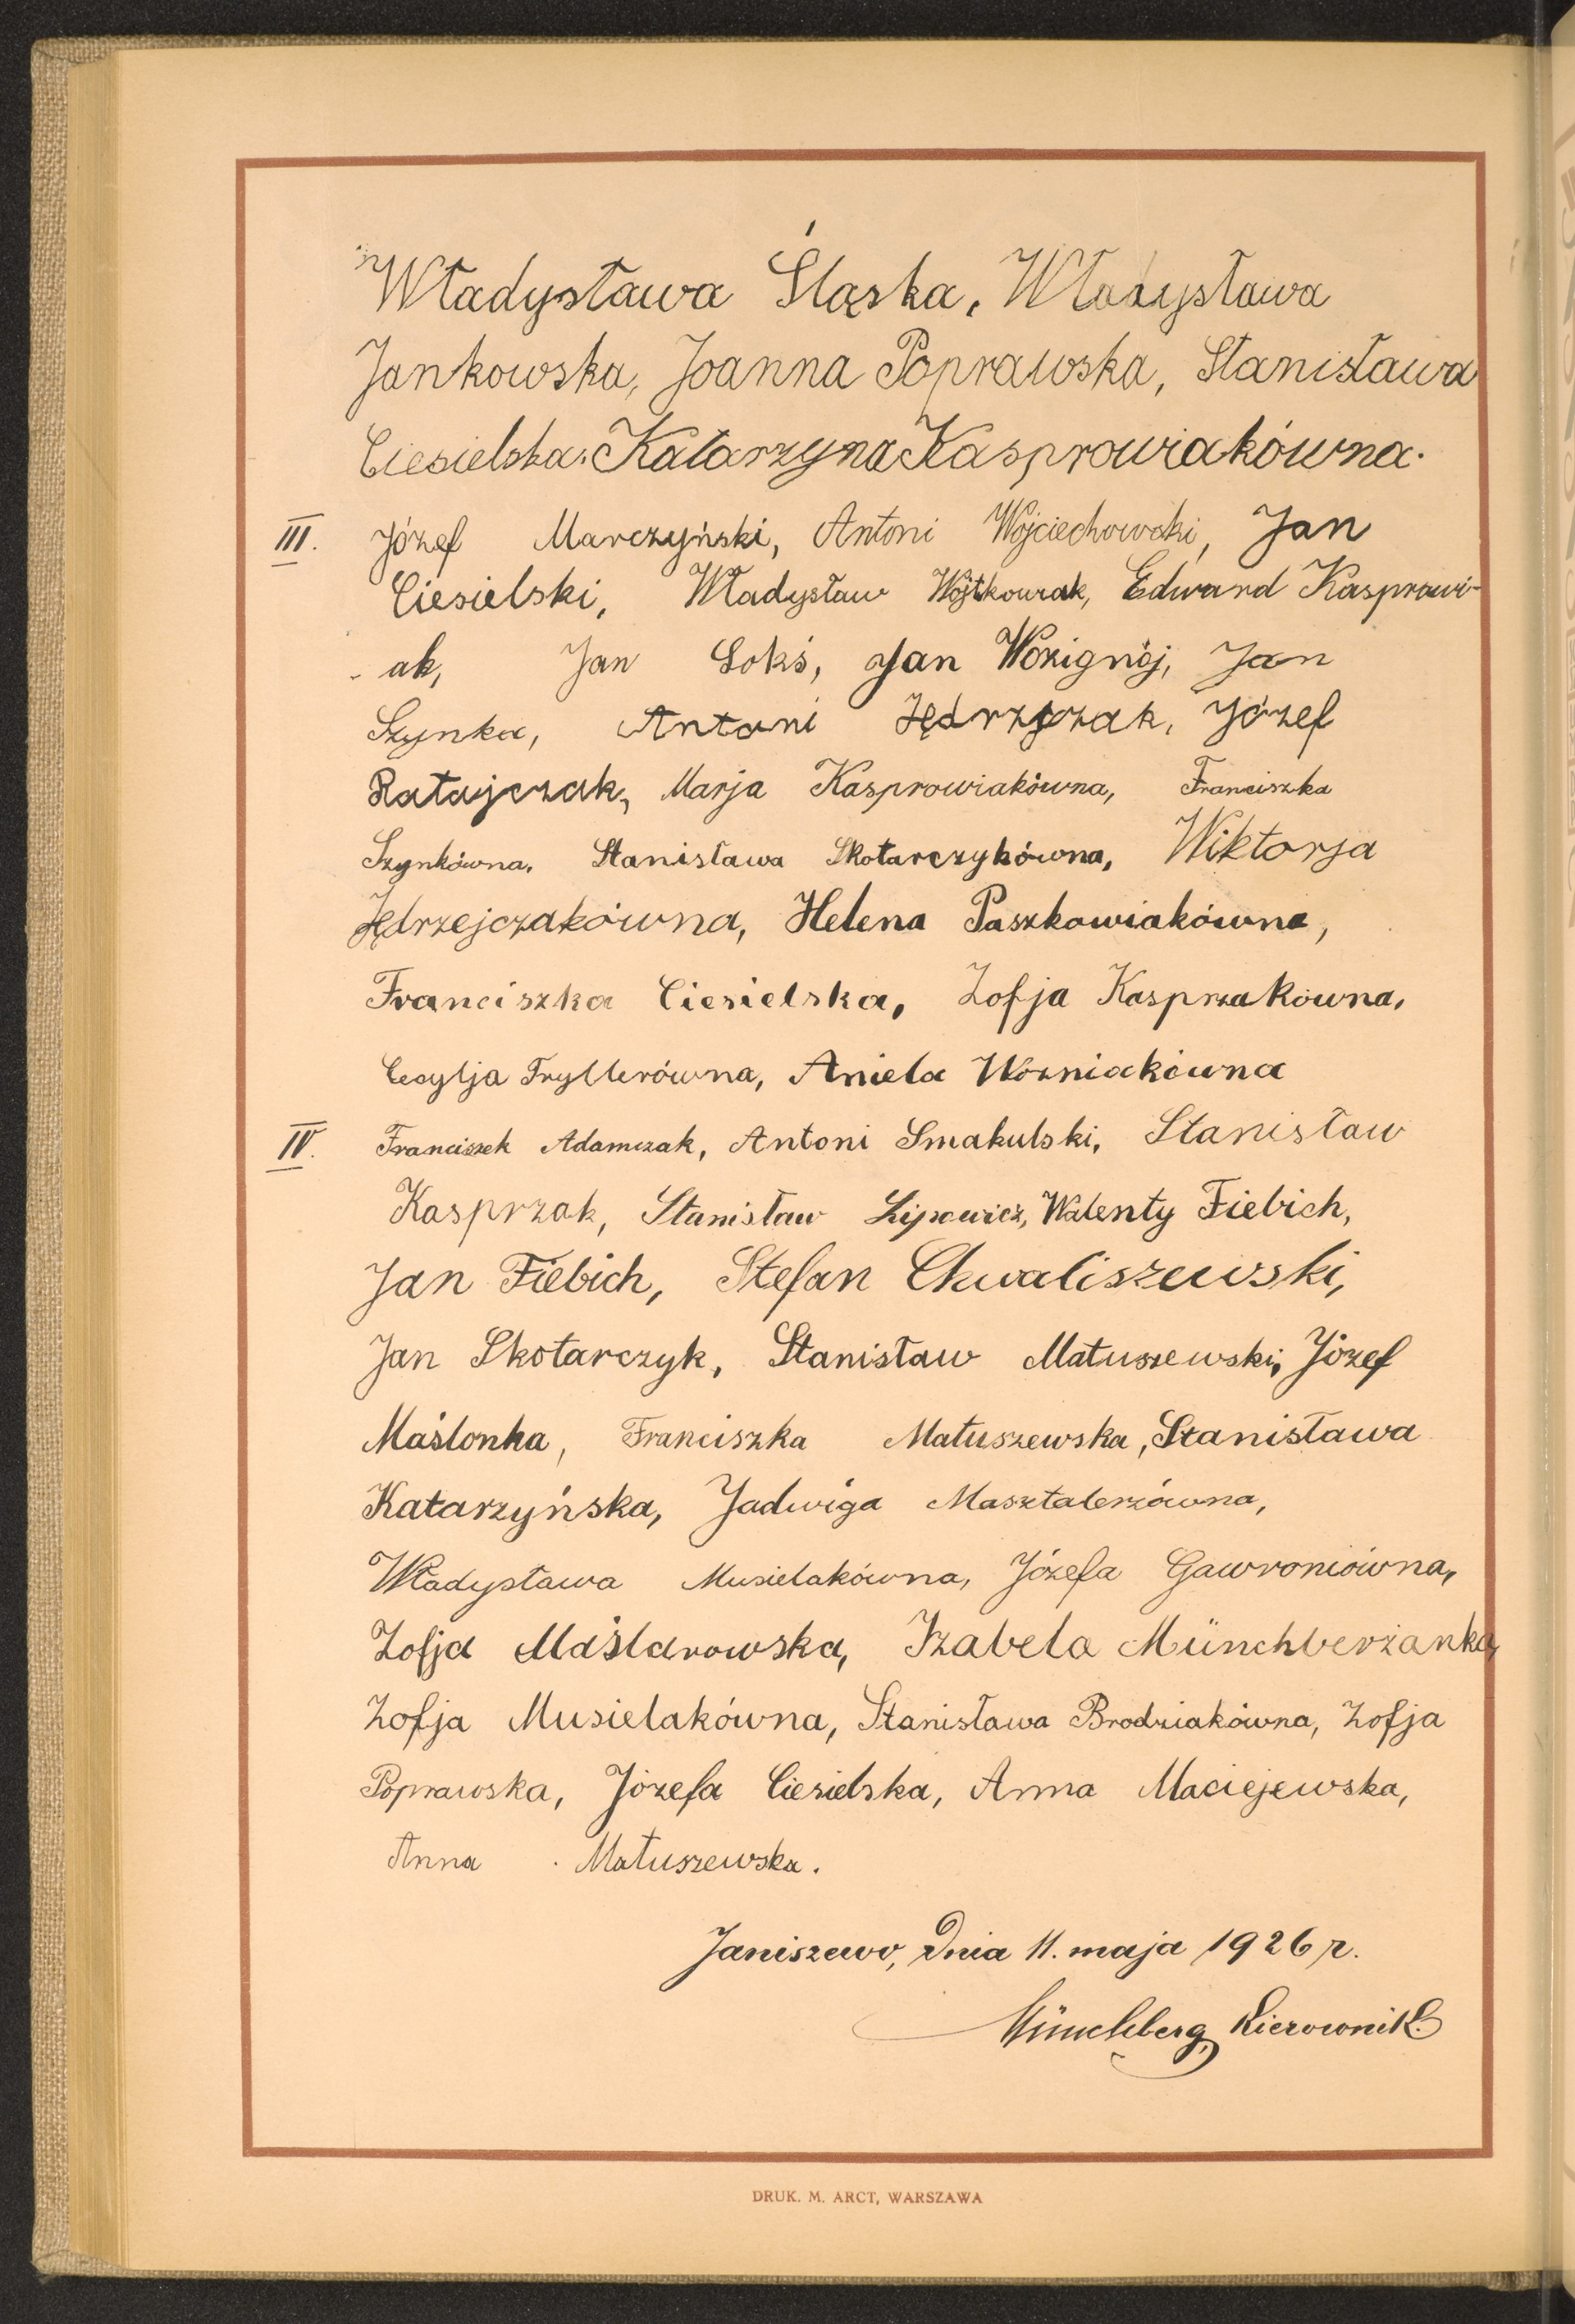 Władysława Śląska, Władysława
Jankowska, Joanna Poprawska, Stanisława
Ciesielska, Katarzyna Kasprowiakówna.
III. Józef Marczyński, Antoni Wojciechowski, Jan
Ciesielski, Władysław Wojtkowiak, Edward Kasprowi-
ak, Jan Sokś, Jan Wozignój, Jan
Szynka, Antoni Józef
Ratajczak, Marja Kasprowiakówna, Franciszka
Szynkówna, Stanisława Skotarczykówna, Wiktorja
Jędrzejczakówna, Helena Paszkowiakówna,
Franciszka Ciesielska, Zofja Kasprzakówna,
Cecylja Tryllerówna, Aniela Wozniakówna
IV. Franciszek Adamczak, Antoni Smakulski, Stanisław
Kasprzak, Stanisław Lipowicz, Walenty Fiebich,
Jan Fiebich, Stefan Chwaliszewski,
Jan Skotarczyk, Stanisław Matuszewski, Józef
Maślonka, Franciszka Matuszewska, Stanisława
Katarzyńska, Jadwiga Masztalerzówna,
Władysława Musielakówna, Józefa Gawroniówna,
Zofja Maślarowska, Izabela Münchberżanka,
Zofja Musielakówna, Stanisława Brodziakówna, Zofja
Poprawska, Józefa Ciesielska, Anna Maciejewska,
Anna Matuszewska.
Janiszewo, dnia 11. maja 1926 r.
Münchberg, Kierownik
DRUK. M. ARCT, WARSZAWA